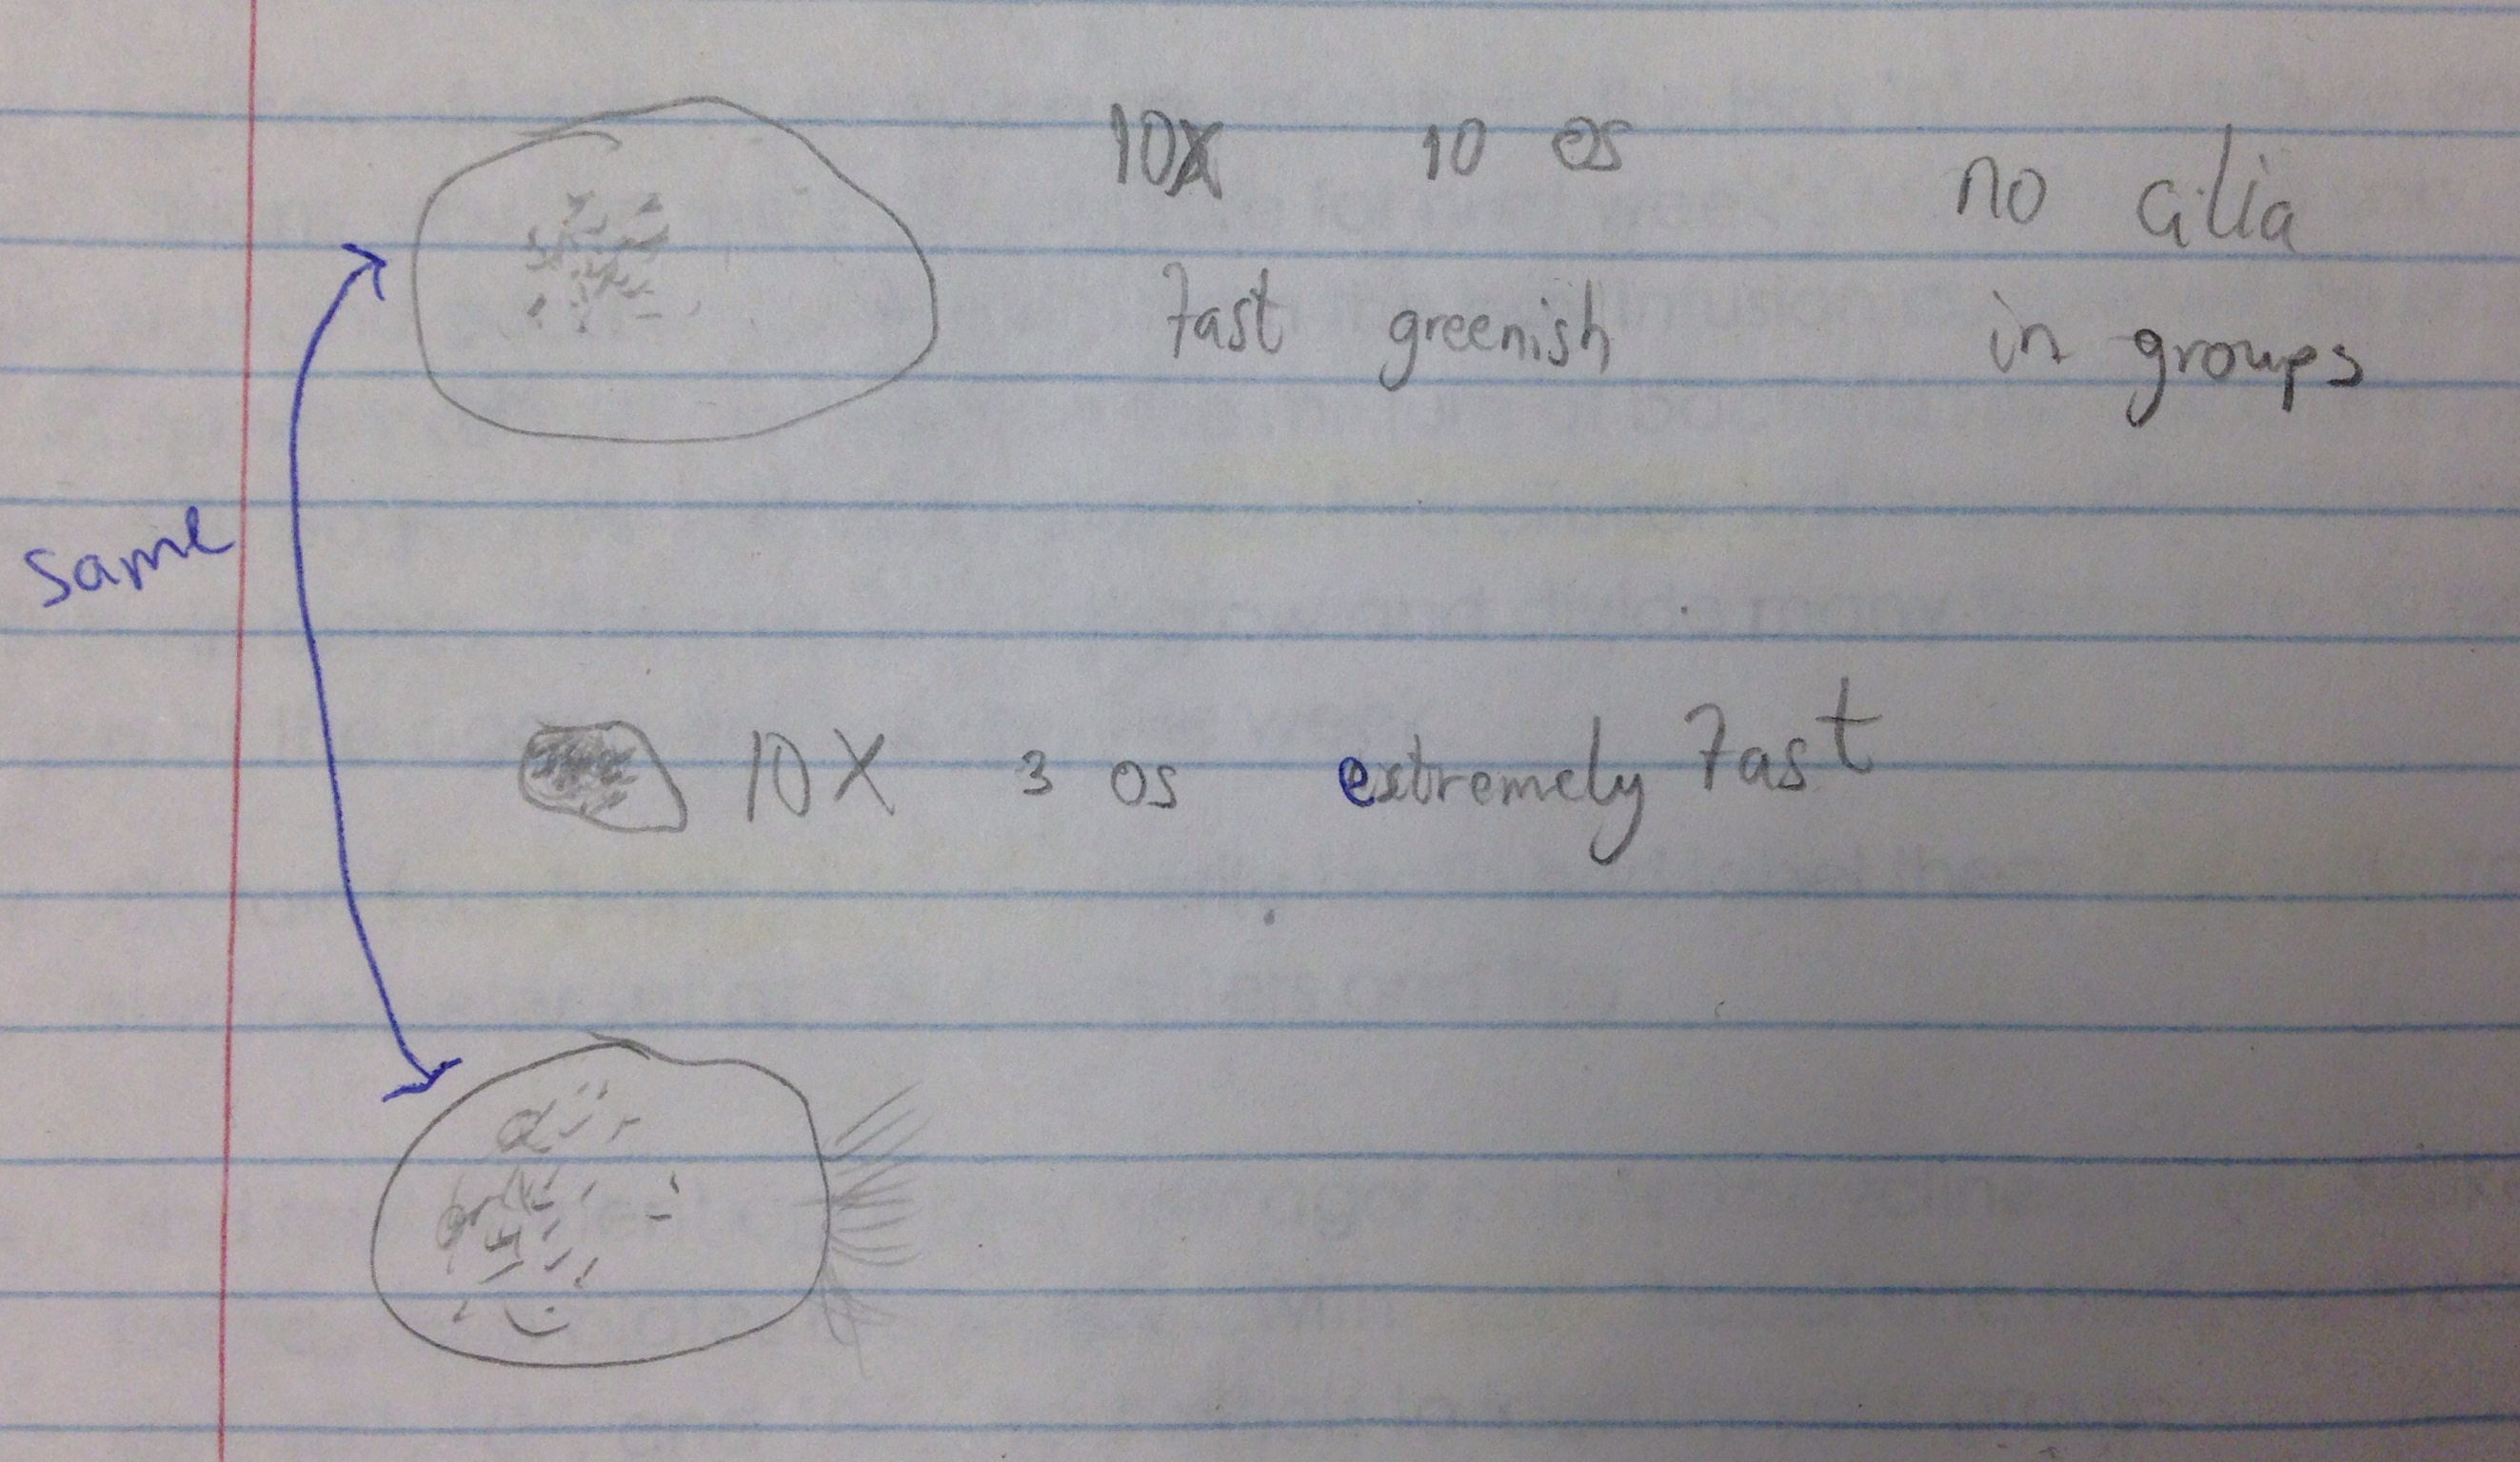 10X 10 os no cilia
fast greenish in groups
same
10X 3 os extremely fast